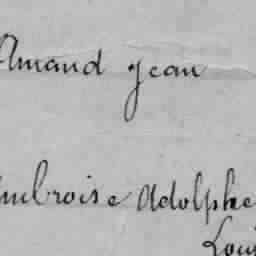 Amand Jean
Ambroise Adolphe
Loui